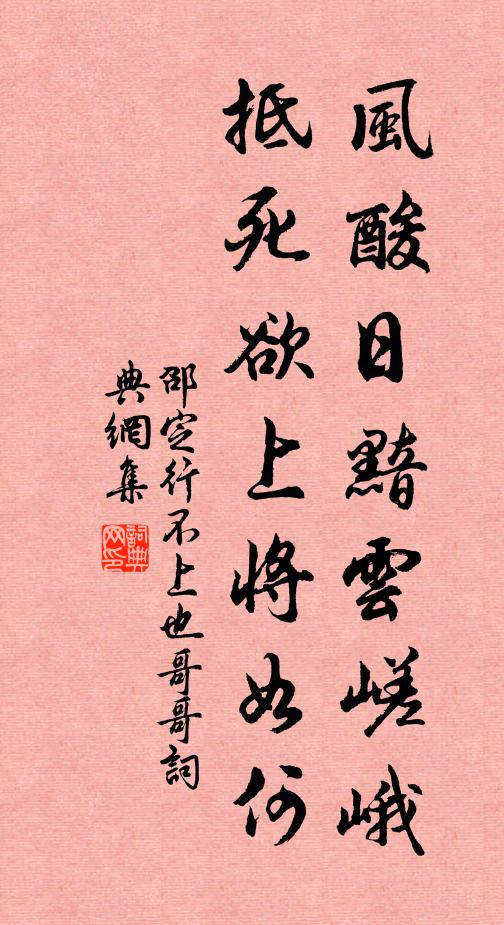 風酸日黯雲嵯峨
抵死欲上將如何
邵定行不上也哥哥詞
典網集
詞典
网印